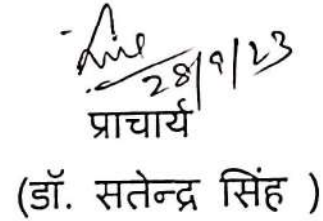 28/9/23
प्राचार्य
(डॉ. सतेन्द्र सिंह )